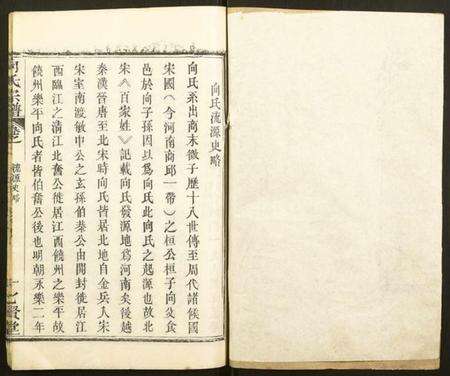 向氏流源史略
向氏系出商末微子歷十八世傳至周代諸候國
宋國（今河南商邱一帶）之桓公桓子向父食
邑於向子孫因以為向氏此向氏之起源也故北
宋《百家姓》記載向氏發源地為河南矣後越
秦漢晉唐至北宋時向氏皆居北地自金兵入宋
宋室南渡敏中公之玄孫伯秦公由開封徙居江
西臨江之清江北奮公徙居江西饒州之樂平故
饒州樂平向氏者皆伯奮公後也明朝永樂二年
向氏宗譜
流源史略